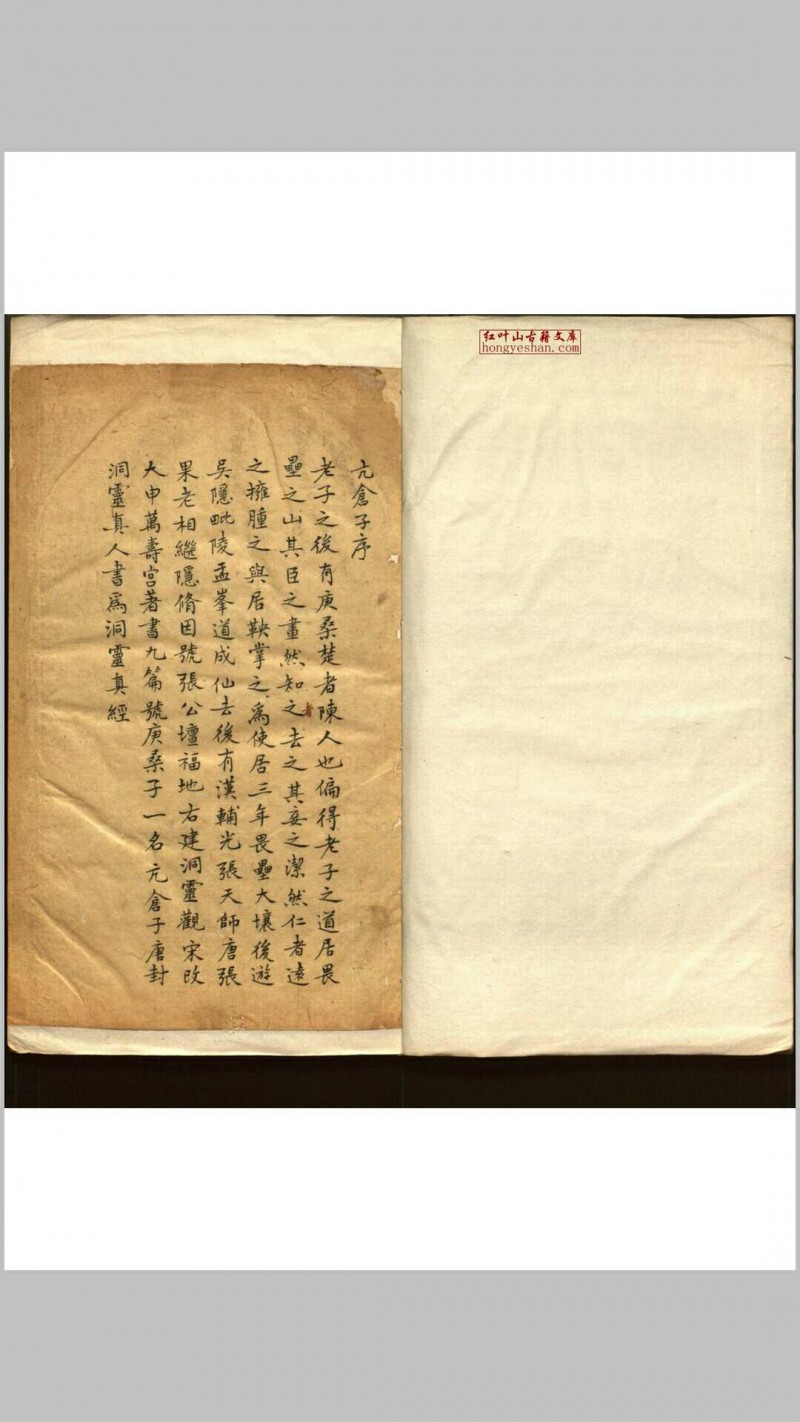 亢倉子序
老子之後有庚桑楚者陳人也偏得老子之道居畏
壘之山其臣之畫然知者去之其妾之潔然仁者遠
之擁腫之與居鞅掌之爲使居三年畏壘大壤後遊
吳隱毗陵孟峯道成仙去後有漢輔光張天師唐張
果老相繼隱脩因號張公壇福地右建洞靈觀宋改
大申萬壽宮著書九篇號庚桑子一名亢倉子唐封
洞靈真人書爲洞靈真經
红叶山古籍文库
hongyeshan.com